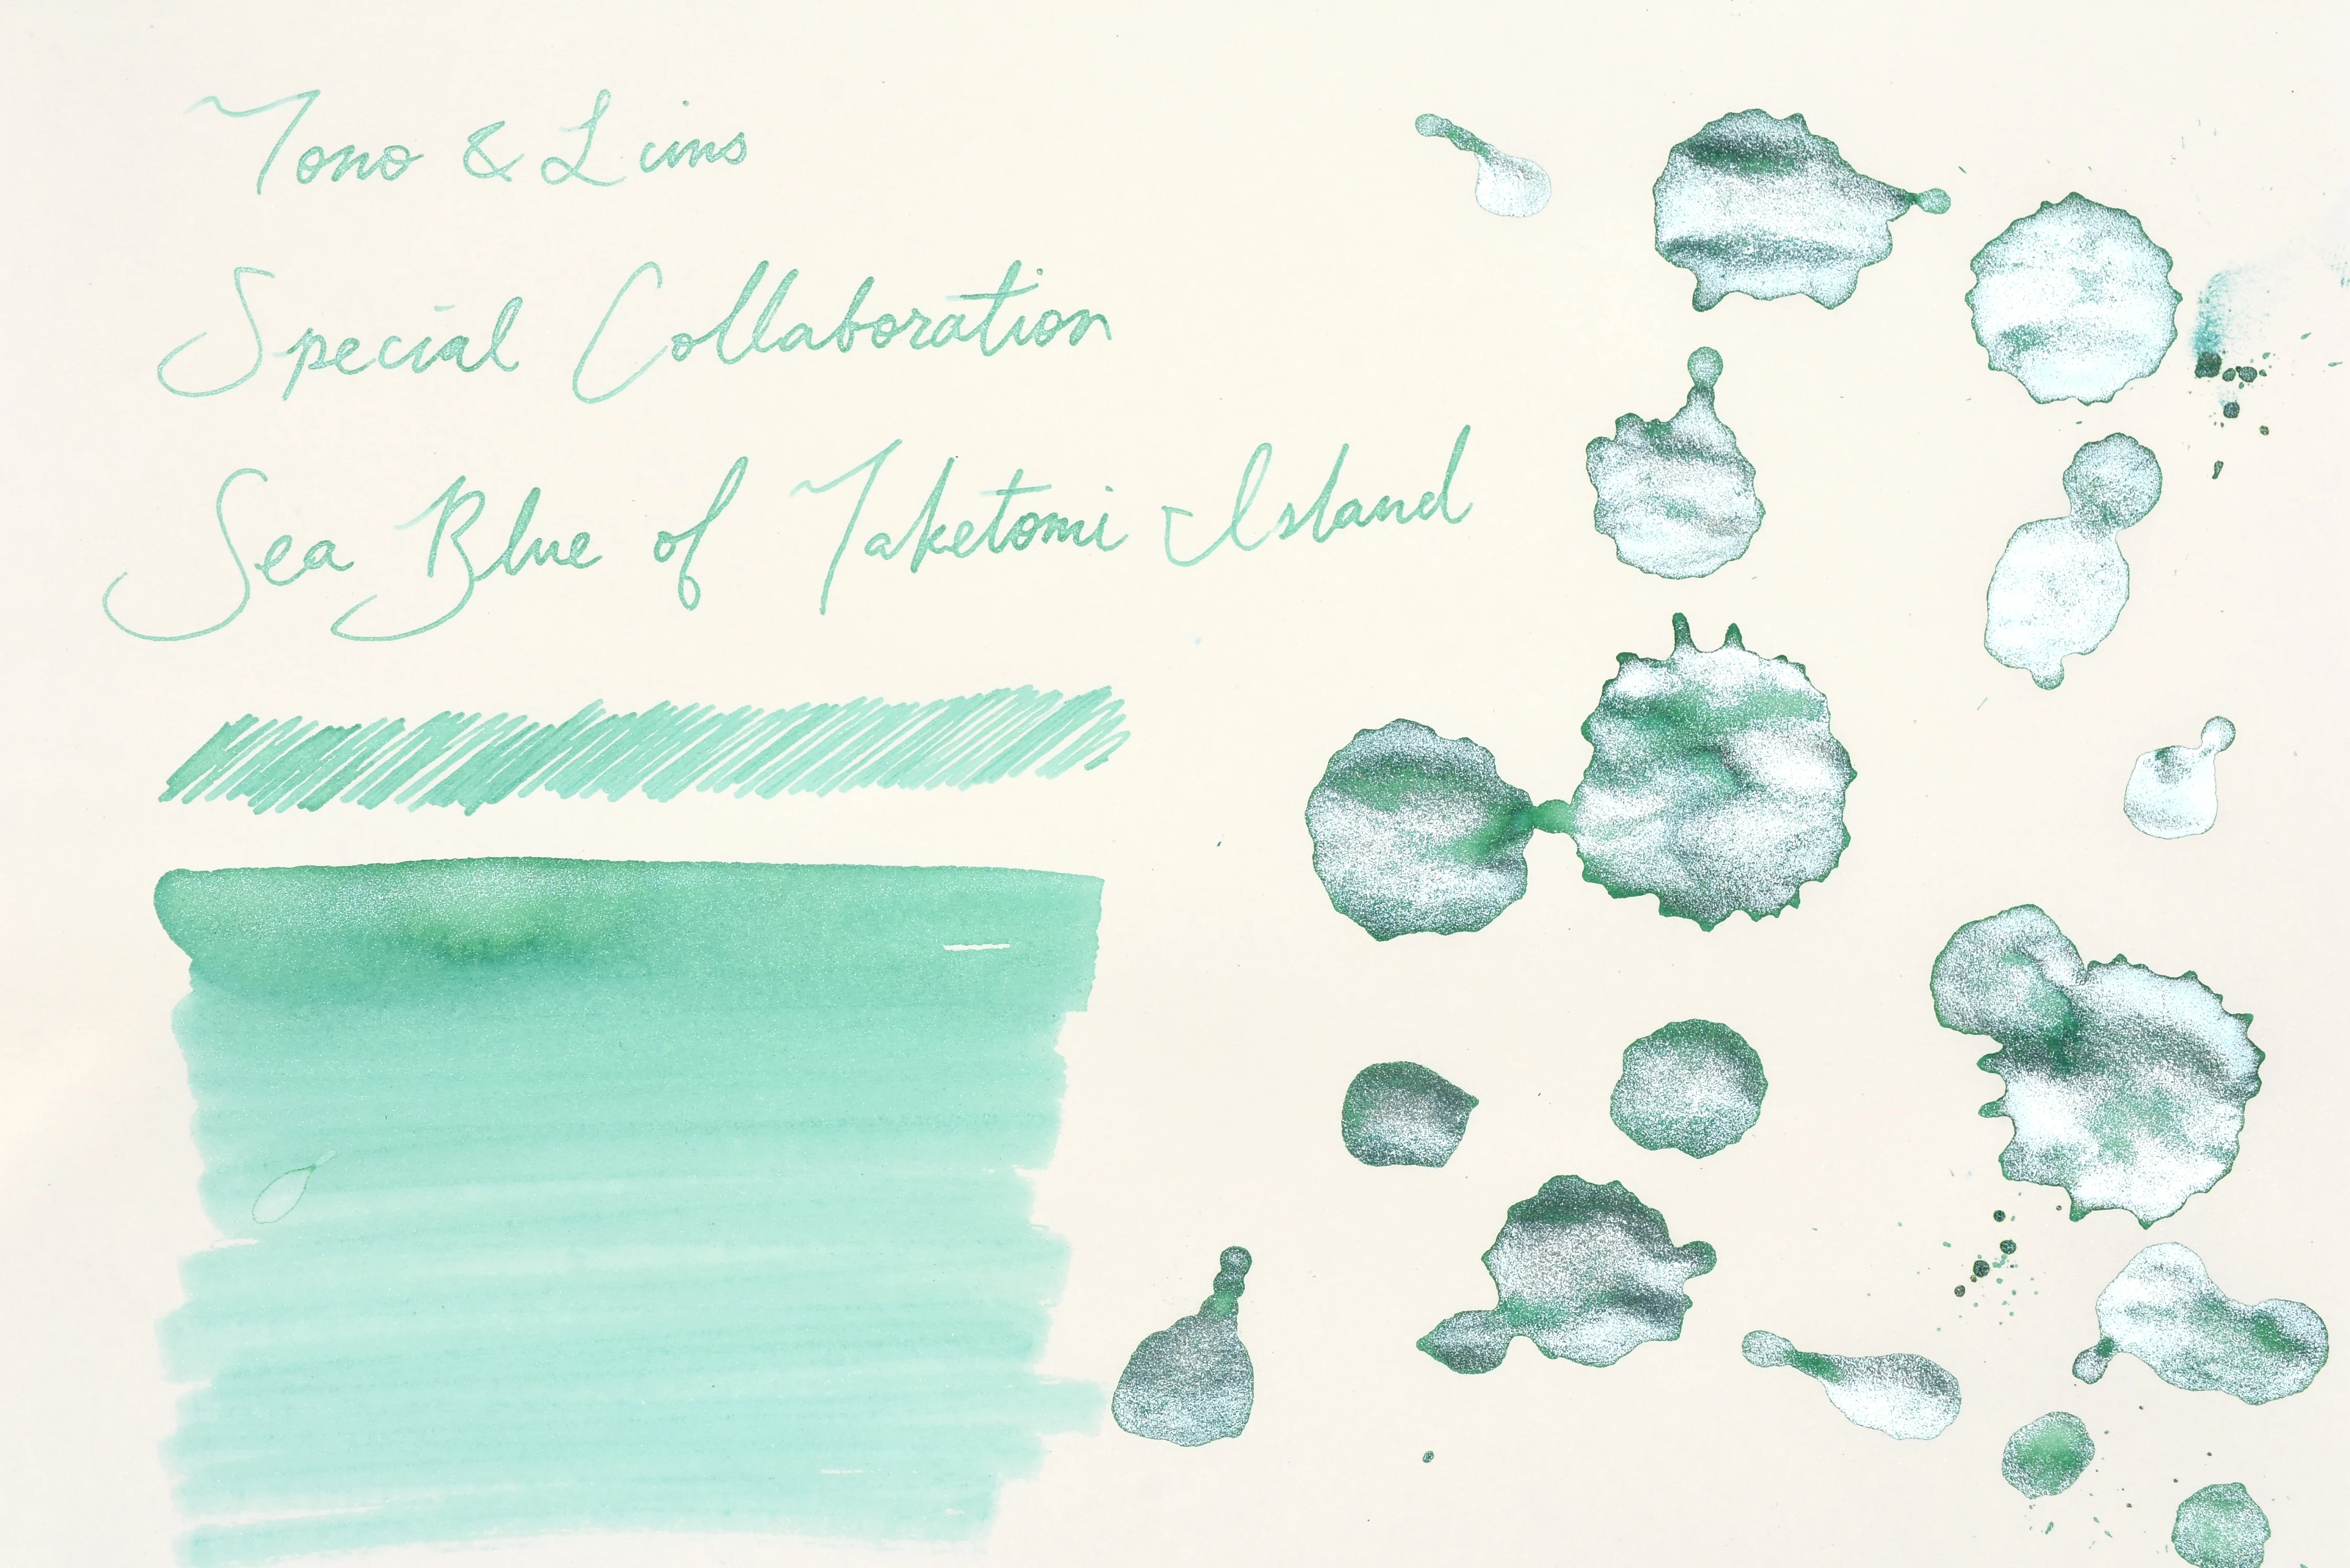 Tono & Lims
Special Collaboration
Sea Blue of Taketomi Island